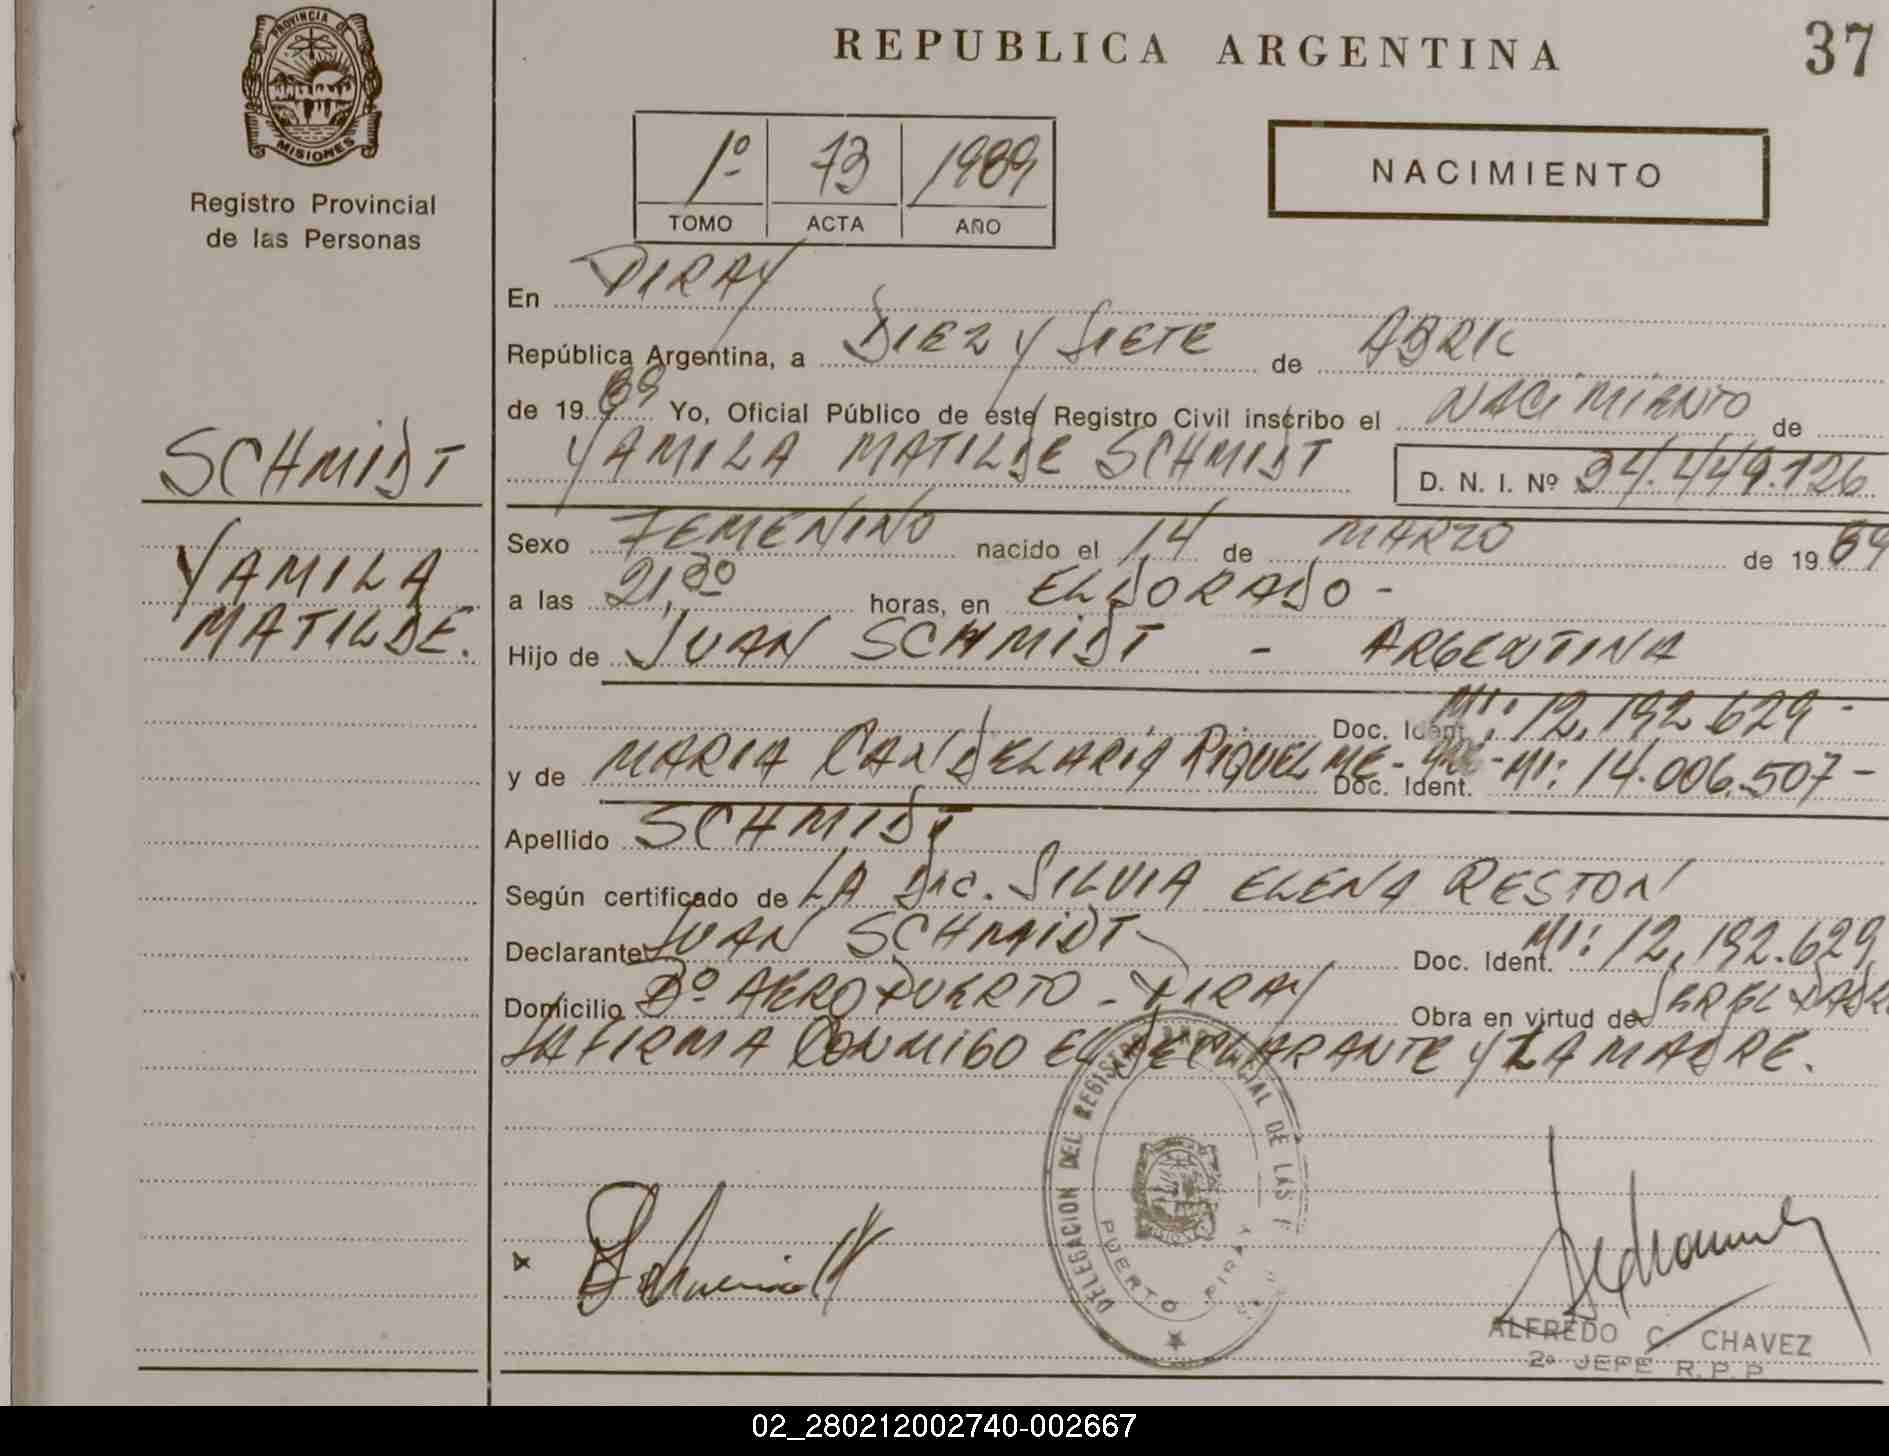 PROVINCIA DE
MISIONES
Registro Provincial
de las Personas
REPUBLICA ARGENTINA
37
1º 73 1989
TOMO ACTA AÑO
NACIMIENTO
En PIRAY
República Argentina, a DIEZ Y SIETE de ABRIL
de 19 89 Yo, Oficial Público de este Registro Civil inscribo el NACIMIENTO de
YAMILA MATILDE SCHMIDT D. N. I. Nº 34.449.126
SCHMIDT
YAMILA
MATILDE.
Sexo FEMENINO nacido el 14 de MARZO de 19 89
a las 21,30 horas, en ELDORADO -
Hijo de JUAN SCHMIDT - ARGENTINA
Doc. Ident. MI: 12.192.629 -
y de MARIA CANDELARIA RIQUELME - MI: 14.006.507 -
Doc. Ident.
Apellido SCHMIDT
Según certificado de LA Dra. SILVIA ELENA RESTON
Declarante JUAN SCHMIDT Doc. Ident. MI: 12.192.629
Domicilio Bº AEROPUERTO - PIRAY Obra en virtud de SER EL PADRE
FIRMA CONMIGO EL DECLARANTE Y LA MADRE.
DELEGACION DEL REGISTRO PROVINCIAL DE LAS
PUERTO PIRAY
ALFREDO C. CHAVEZ
2º JEFE R. P. P
02_280212002740-002667